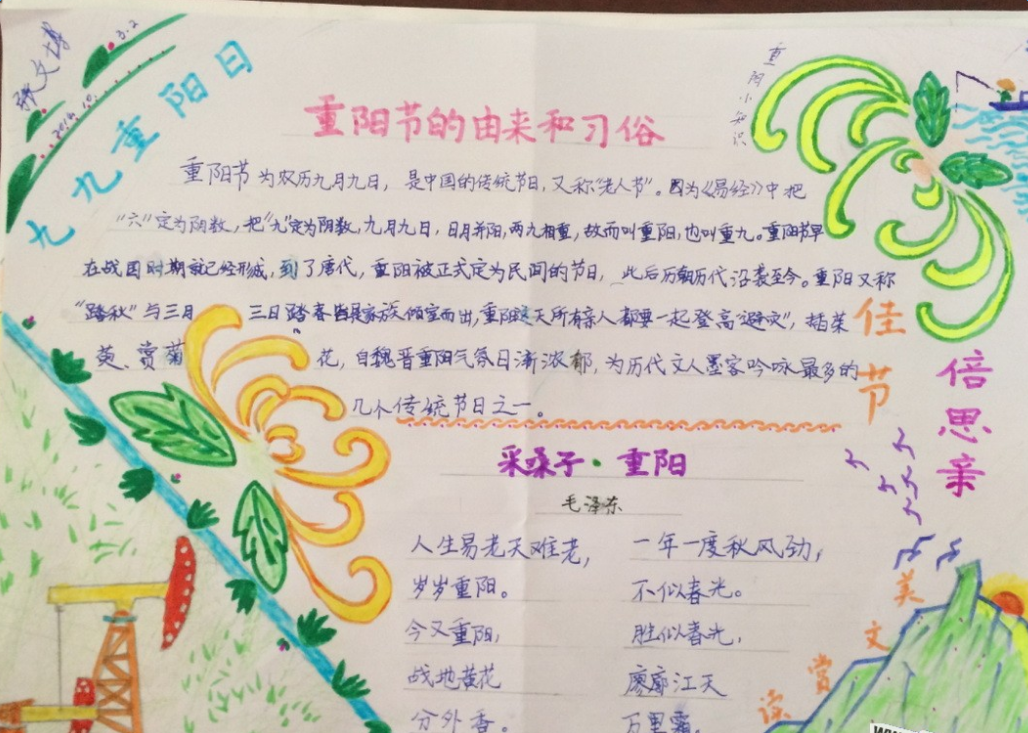 张文博
2016.10.
3.2
九九重阳日
重阳小知识
重阳节的由来和习俗
重阳节为农历九月九日，是中国的传统节日，又称“老人节”。因为《易经》中把
“六”定为阴数，把“九”定为阳数，九月九日，日月并阳，两九相重，故而叫重阳，也叫重九。重阳节早
在战国时期就已经形成，到了唐代，重阳被正式定为民间的节日，此后历朝历代沿袭至今。重阳又称
“踏秋”与三月 三日踏春皆是家族倾室而出，重阳这天所有亲人都要一起登高“避灾”，插茱
萸、赏菊 花，自魏晋重阳气氛日渐浓郁，为历代文人墨客吟咏最多的
几个传统节日之一。
佳节
倍思亲
采桑子·重阳
毛泽东
人生易老天难老， 一年一度秋风劲，
岁岁重阳。 不似春光。
今又重阳， 胜似春光，
战地黄花 廖廓江天
分外香。 万里霜。
美文赏读